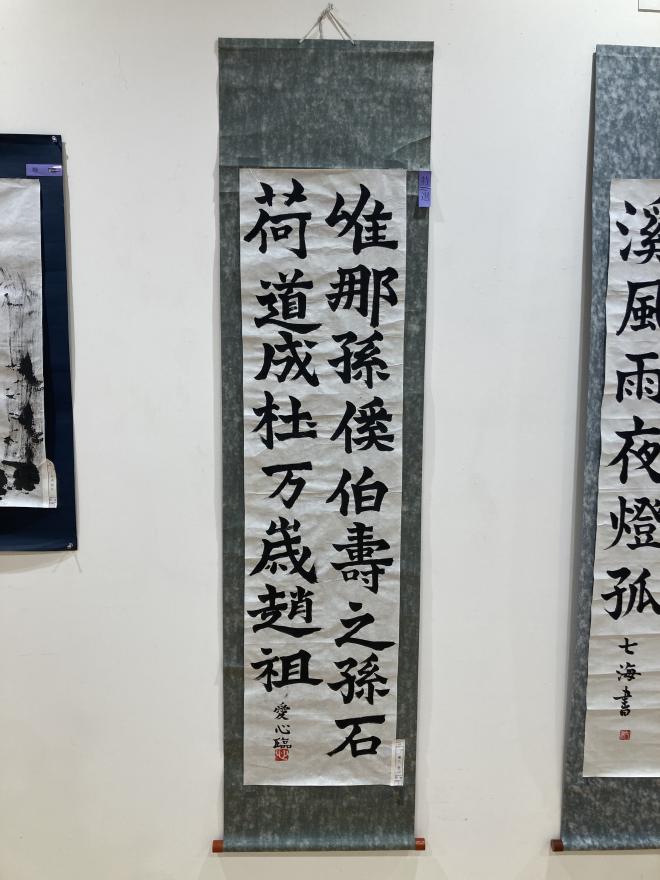 溪風雨夜燈孤
七海書
特選
唯那孫傒伯壽之孫石
荷道成杜万歲趙祖
愛心臨